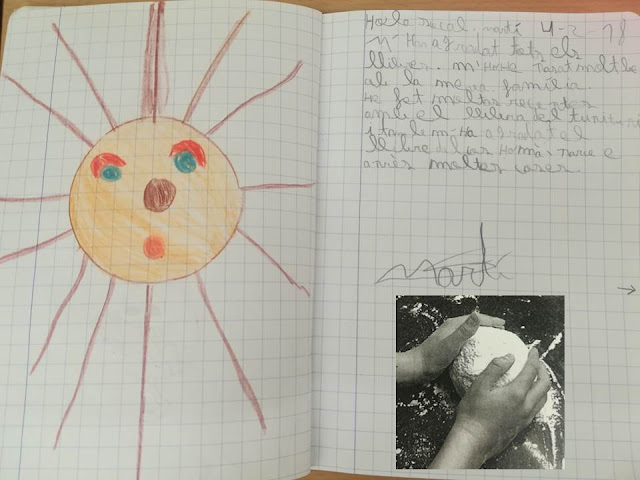 Hola sucal. martí 4-2-18
M'Han agradat tots els
llibres. m'HeHe Tarat molt be
ab la meva família.
He fet moltas receptes
amb el llibre del
i també m'Ha agradat el
llibre de las
après moltes coses.
Martí
→